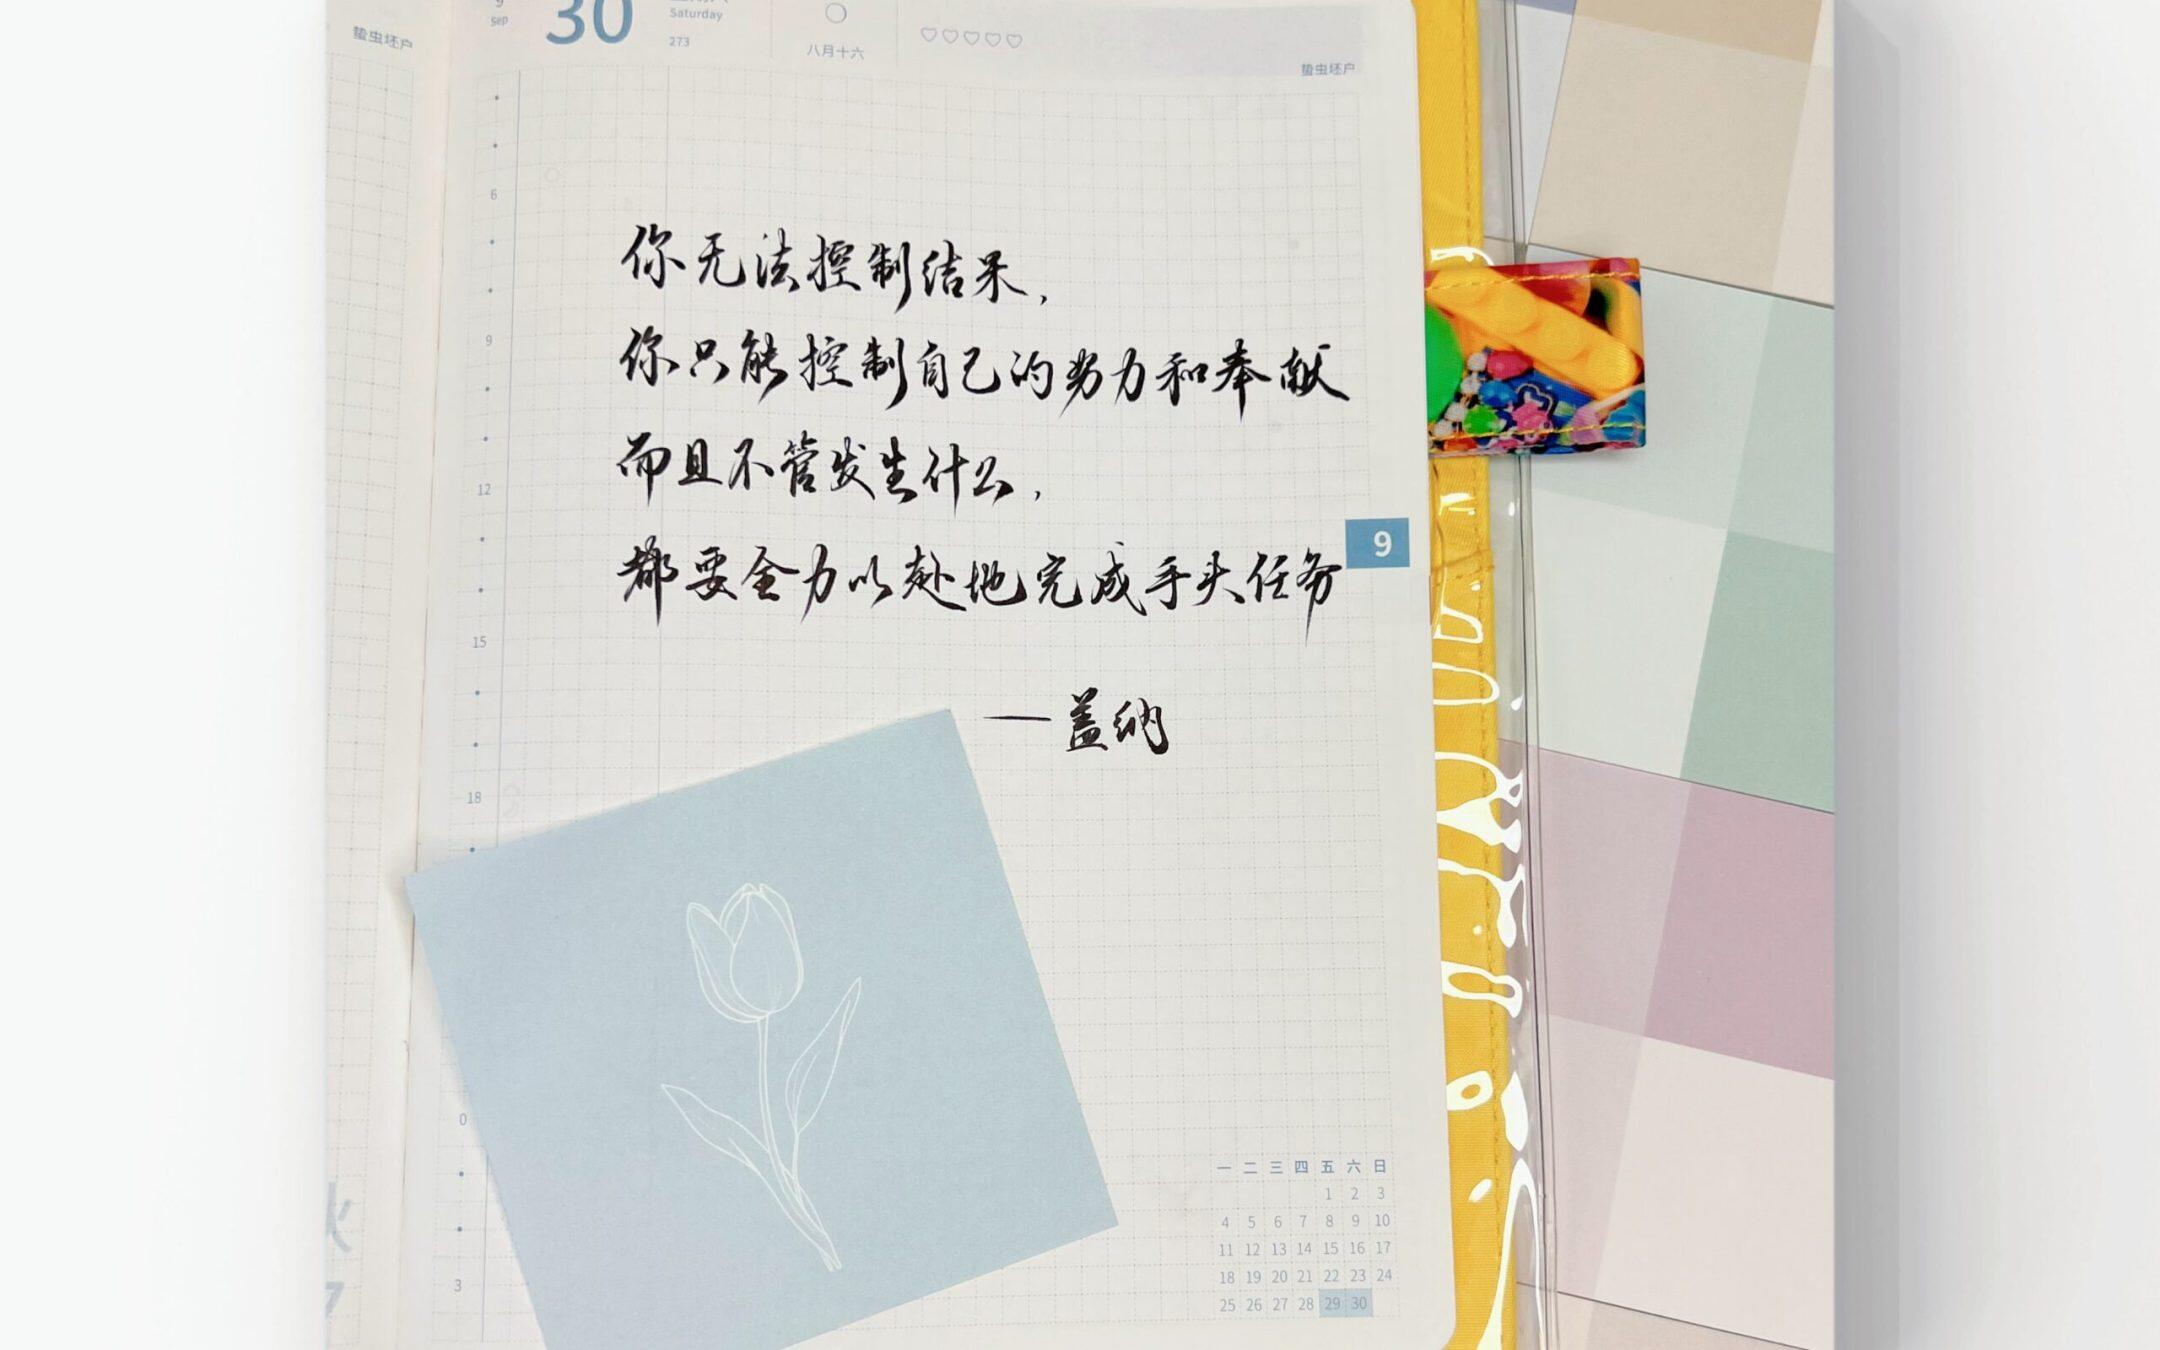 9
Sep
30
Saturday
273
八月十六
蛰虫坯户
蛰虫坯户
6
9
12
15
18
0
3
你无法控制结果,
你只能控制自己的努力和奉献
而且不管发生什么,
都要全力以赴地完成手头任务
—盖纳
9
一 二 三 四 五 六 日
1 2 3
4 5 6 7 8 9 10
11 12 13 14 15 16 17
18 19 20 21 22 23 24
25 26 27 28 29 30